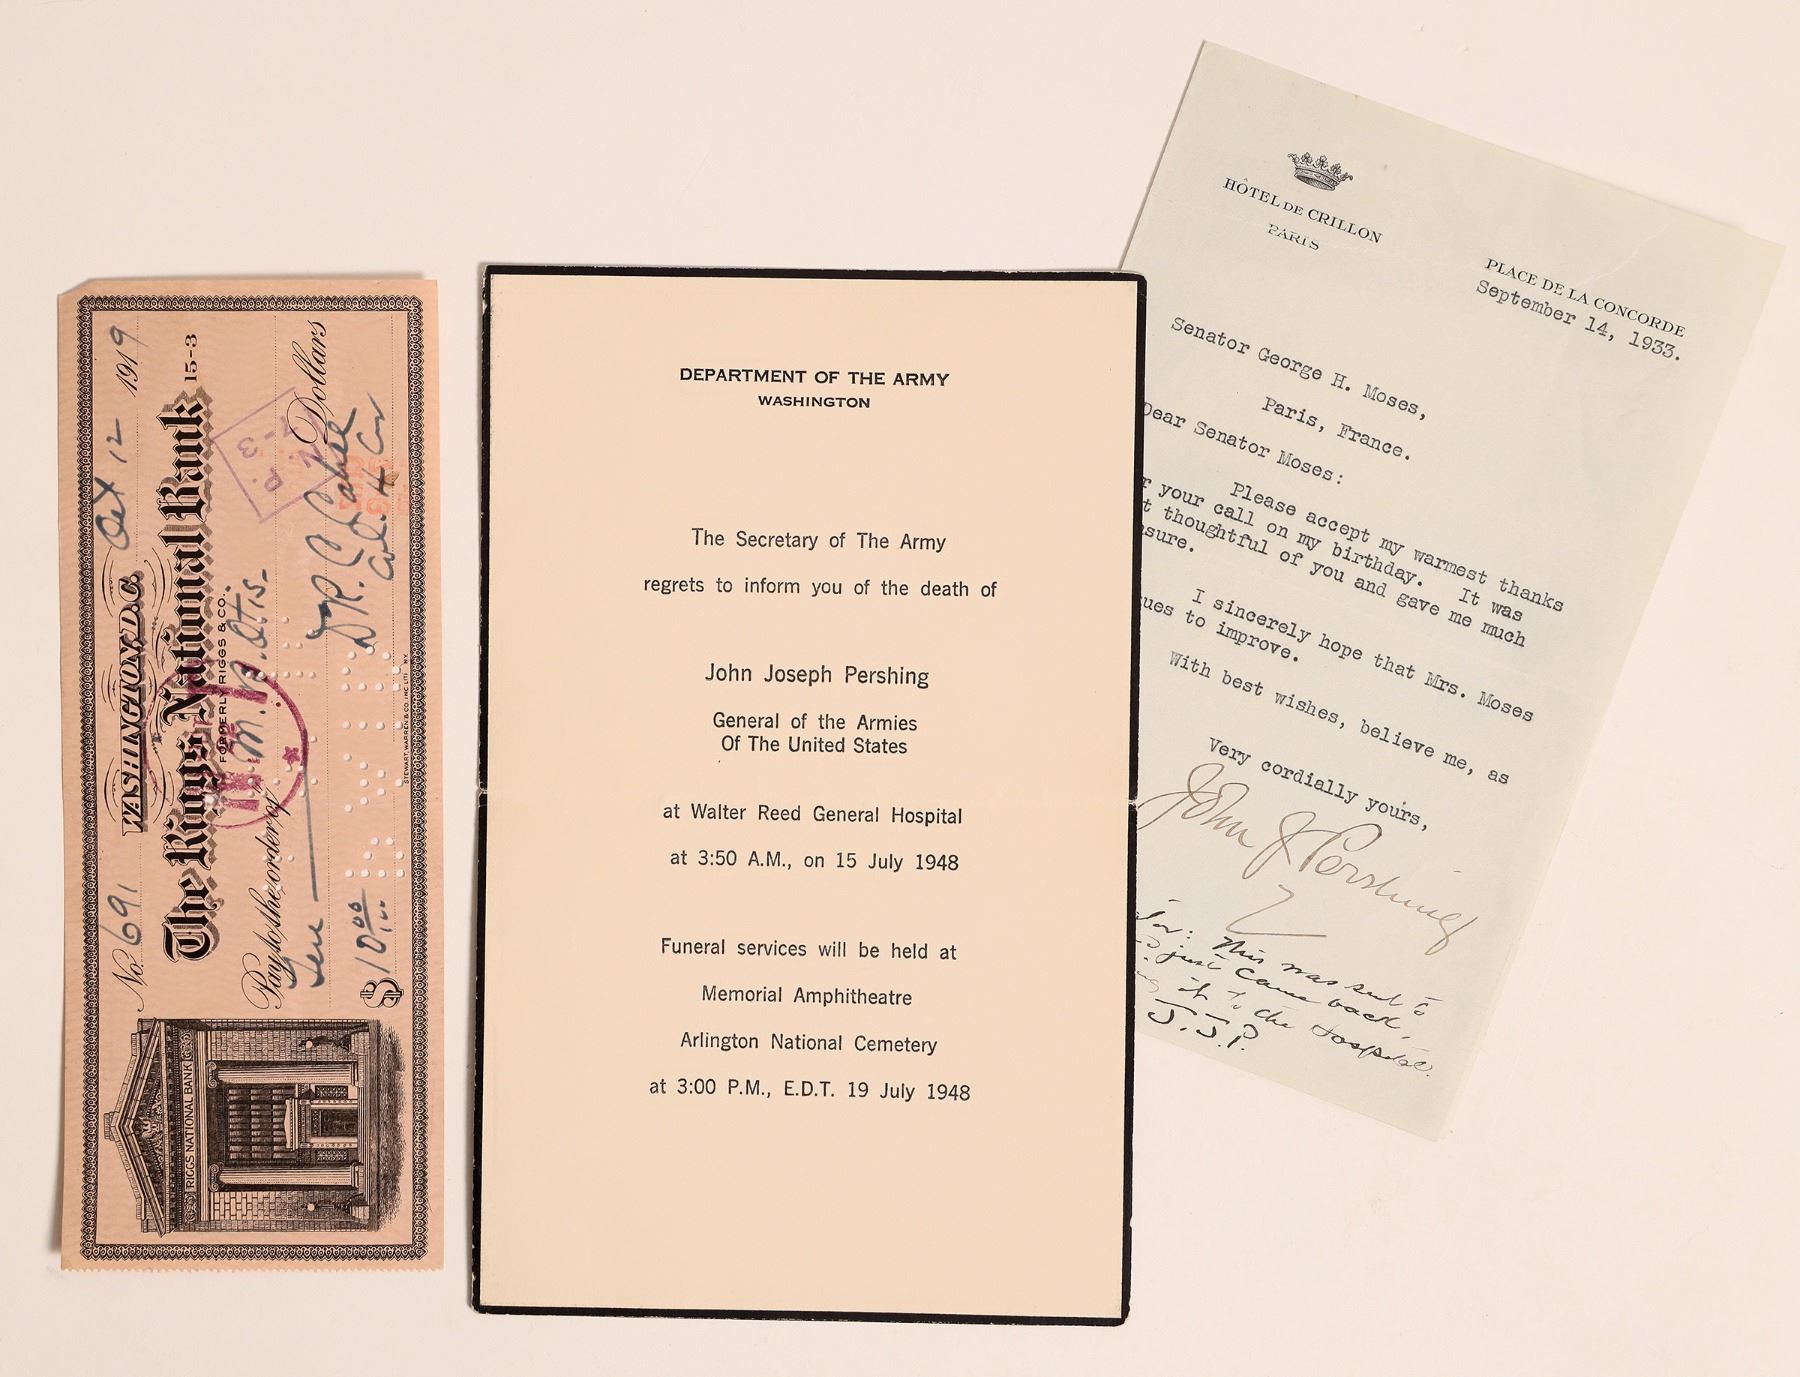 No. 691
WASHINGTON, D.C. Oct 12 1919
The Riggs National Bank 15-3
FORMERLY RIGGS & CO.
Pay to the order of M. B. Otis
Ten Dollars
$10.00
RIGGS NATIONAL BANK
STEWART, WARREN & CO. INC. LITH. N.Y.
DEPARTMENT OF THE ARMY
WASHINGTON
The Secretary of The Army
regrets to inform you of the death of
John Joseph Pershing
General of the Armies
Of The United States
at Walter Reed General Hospital
at 3:50 A.M., on 15 July 1948
Funeral services will be held at
Memorial Amphitheatre
Arlington National Cemetery
at 3:00 P.M., E.D.T. 19 July 1948
HÔTEL DE CRILLON
PARIS
PLACE DE LA CONCORDE
September 14, 1933.
Senator George H. Moses,
Paris, France.
Dear Senator Moses:
Please accept my warmest thanks
your call on my birthday. It was
thoughtful of you and gave me much
sure.
I sincerely hope that Mrs. Moses
ues to improve.
With best wishes, believe me, as
Very cordially yours,
John J Pershing
This was sent to
just came back,
it to the hospital.
J.J.P.